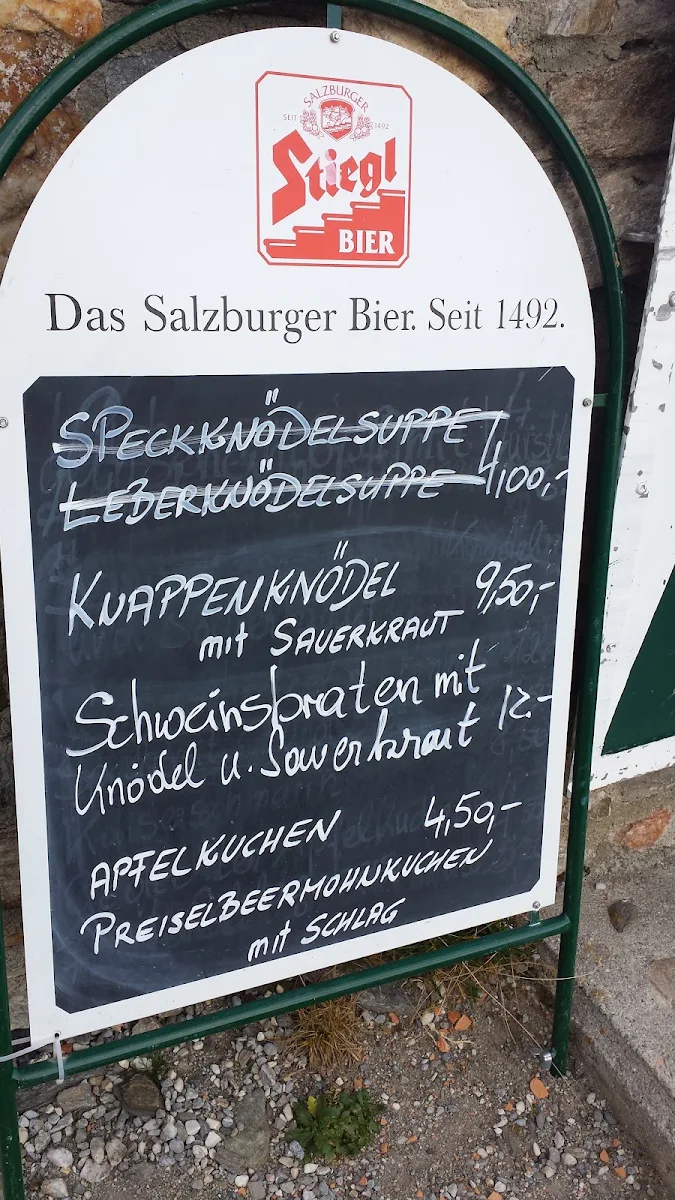 SALZBURGER
SEIT 1492
Stiegl
BIER
Das Salzburger Bier. Seit 1492.
SPECKKNÖDELSUPPE
LEBERKNÖDELSUPPE 4,00,-
KNAPPENKNÖDEL 9,50,-
mit SAUERKRAUT
Schweinsbraten mit
Knödel u. Sauerkraut 12.-
APFELKUCHEN 4,50,-
PREISELBEERMOHNKUCHEN
mit SCHLAG